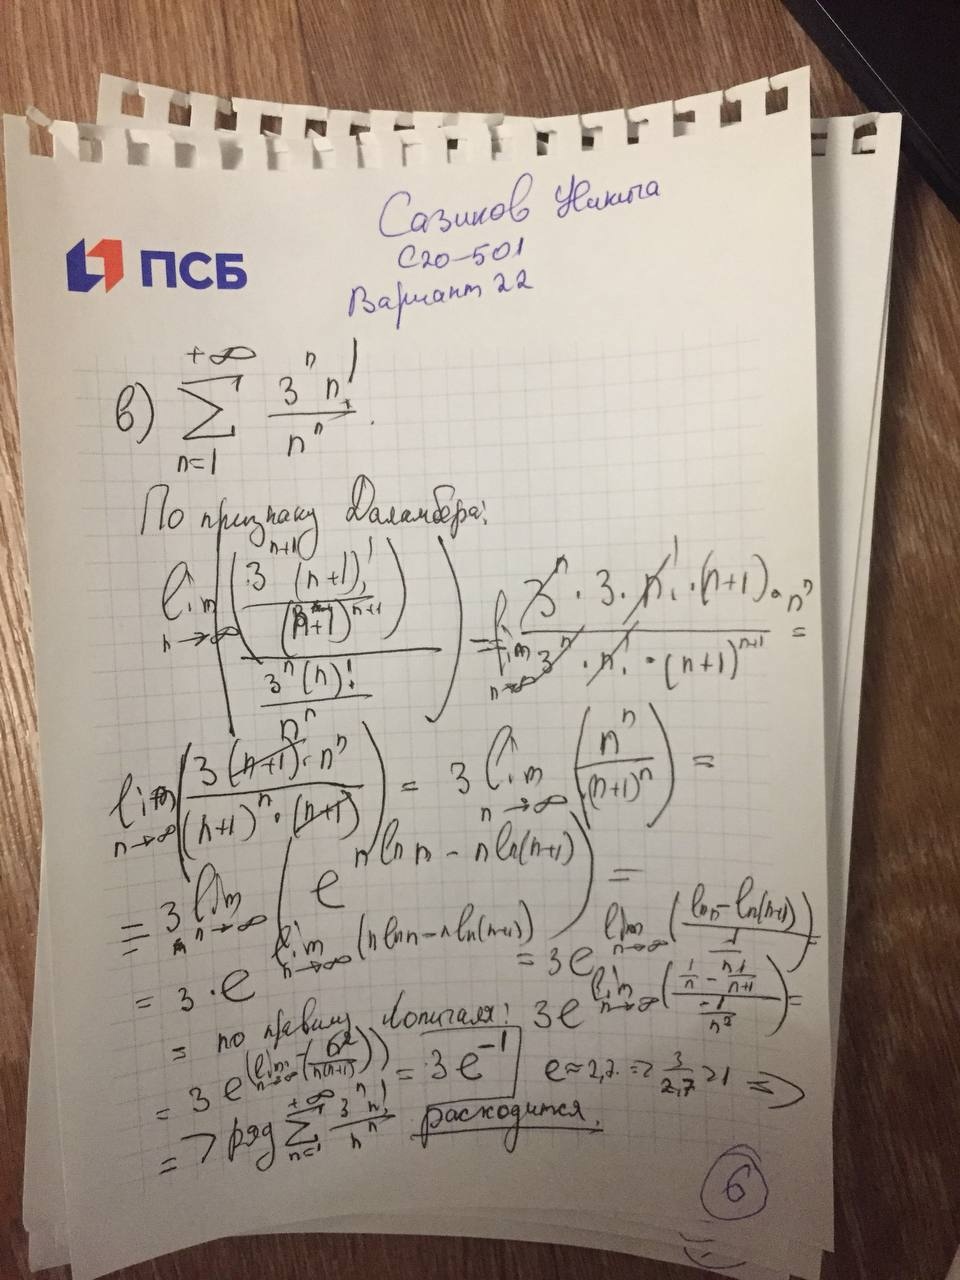 Сазиков Никита
С20-501
Вариант 22
ПСБ
в) +∞ ∑ n=1 3^n n! / n^n.
По признаку Даламбера:
lim n→∞ ((3^(n+1) (n+1)! / (n+1)^(n+1)) / (3^n (n)! / n^n)) = lim n→∞ 3^n · 3 · n! · (n+1) · n^n / 3^n · n! · (n+1)^(n+1) =
lim n→∞ (3(n+1) · n^n / (n+1)^n · (n+1)) = 3 lim n→∞ (n^n / (n+1)^n) =
= 3 lim n→∞ (e^(n ln n - n ln(n+1))) =
= 3 · e^(lim n→∞ (n ln n - n ln(n+1))) = 3e^(lim n→∞ ((ln n - ln(n+1)) / (1/n))) =
= по правилу Лопиталя: 3e^(lim n→∞ ((1/n - 1/(n+1)) / (-1/n²))) =
= 3e^(lim n→∞ -(n² / n(n+1))) = 3e^(-1) e ≈ 2,7. => 3/2,7 > 1 =>
=> ряд +∞ ∑ n=1 3^n n! / n^n расходится.
6